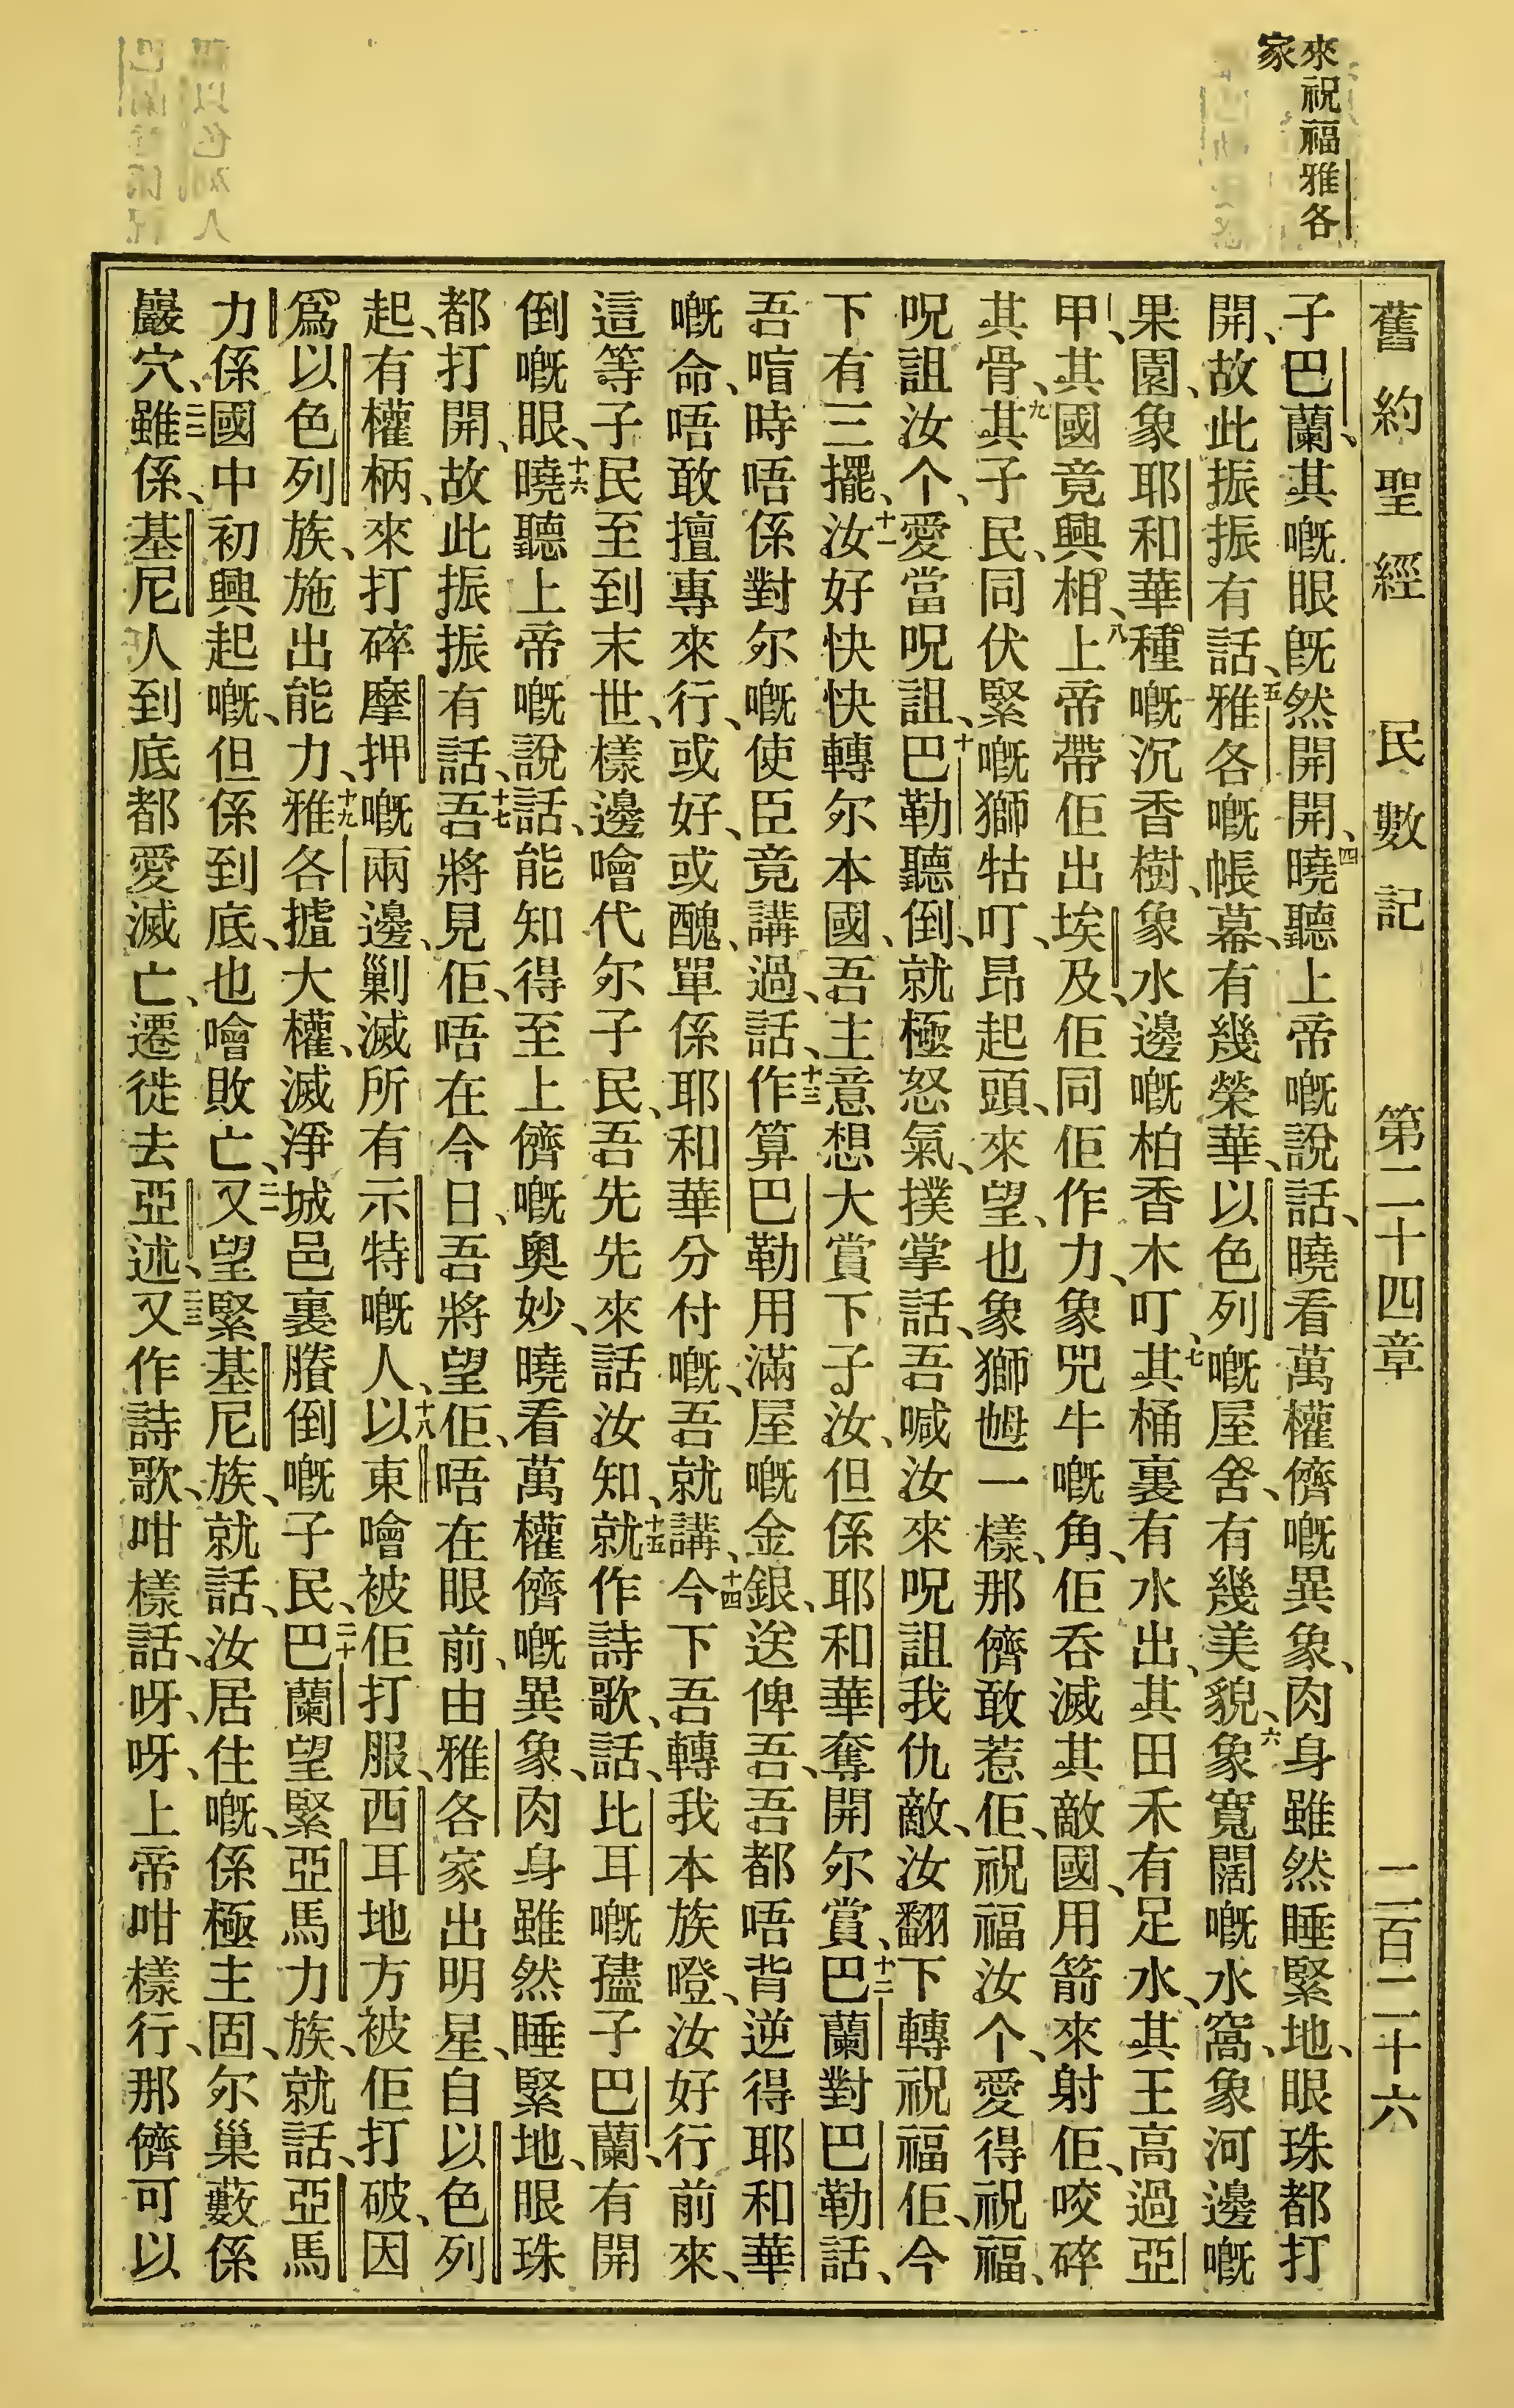 來祝福雅各
家
舊約聖經 民數記 第二十四章 二百二十六
子巴蘭、其嘅眼旣然開開、四曉聽上帝嘅說話、曉看萬權儕嘅異象、肉身雖然睡緊地、眼珠都打
開、故此振振有話、五雅各嘅帳幕、有幾榮華、以色列嘅屋舍、有幾美貌、六象寬闊嘅水窩、象河邊嘅
果園、象耶和華種嘅沉香樹、象水邊嘅柏香木叮、七其桶裏有水出、其田禾有足水、其王高過亞
甲、其國竟興相、八上帝帶佢出埃及、佢同佢作力、象兕牛嘅角、佢吞滅其敵國、用箭來射佢、咬碎
其骨、九其子民、同伏緊嘅獅牯叮、昂起頭、來望、也象獅乸一樣、那儕敢惹佢、祝福汝个、愛得祝福、
呪詛汝个、愛當呪詛、十巴勒聽倒、就極怒氣、撲掌話、吾喊汝來呪詛我仇敵、汝翻下轉祝福佢、今
下有三擺、十一汝好快快轉尔本國、吾主意想大賞下子汝、但係耶和華奪開尔賞、十二巴蘭對巴勒話、
吾喑時唔係對尔嘅使臣竟講過、話、十三作算巴勒用滿屋嘅金銀、送俾吾、吾都唔背逆得耶和華
嘅命、唔敢擅專來行、或好、或醜、單係耶和華分付嘅、吾就講、十四今下吾轉我本族噔、汝好行前來、
這等子民至到末世、樣邊噲代尔子民、吾先先來話汝知、十五就作詩歌、話、比耳嘅孻子巴蘭、有開
倒嘅眼、十六曉聽上帝嘅說話、能知得至上儕嘅奧妙、曉看萬權儕嘅異象、肉身雖然睡緊地、眼珠
都打開、故此振振有話、十七吾將見佢、唔在今日、吾將望佢、唔在眼前、由雅各家出明星、自以色列
起、有權柄、來打碎摩押嘅兩邊、剿滅所有示特嘅人、十八以東噲被佢打服、西耳地方被佢打破、因
爲以色列族、施出能力、十九雅各攎大權、滅淨城邑裏賸倒嘅子民、二十巴蘭望緊亞馬力族、就話、亞馬
力係國中初興起嘅、但係到底、也噲敗亡、二一又望緊基尼族、就話、汝居住嘅、係極主固、尔巢藪係
巖穴、二二雖係、基尼人到底都愛滅亡、遷徙去亞述、二三又作詩歌、咁樣話、呀、呀、上帝咁樣行、那儕可以